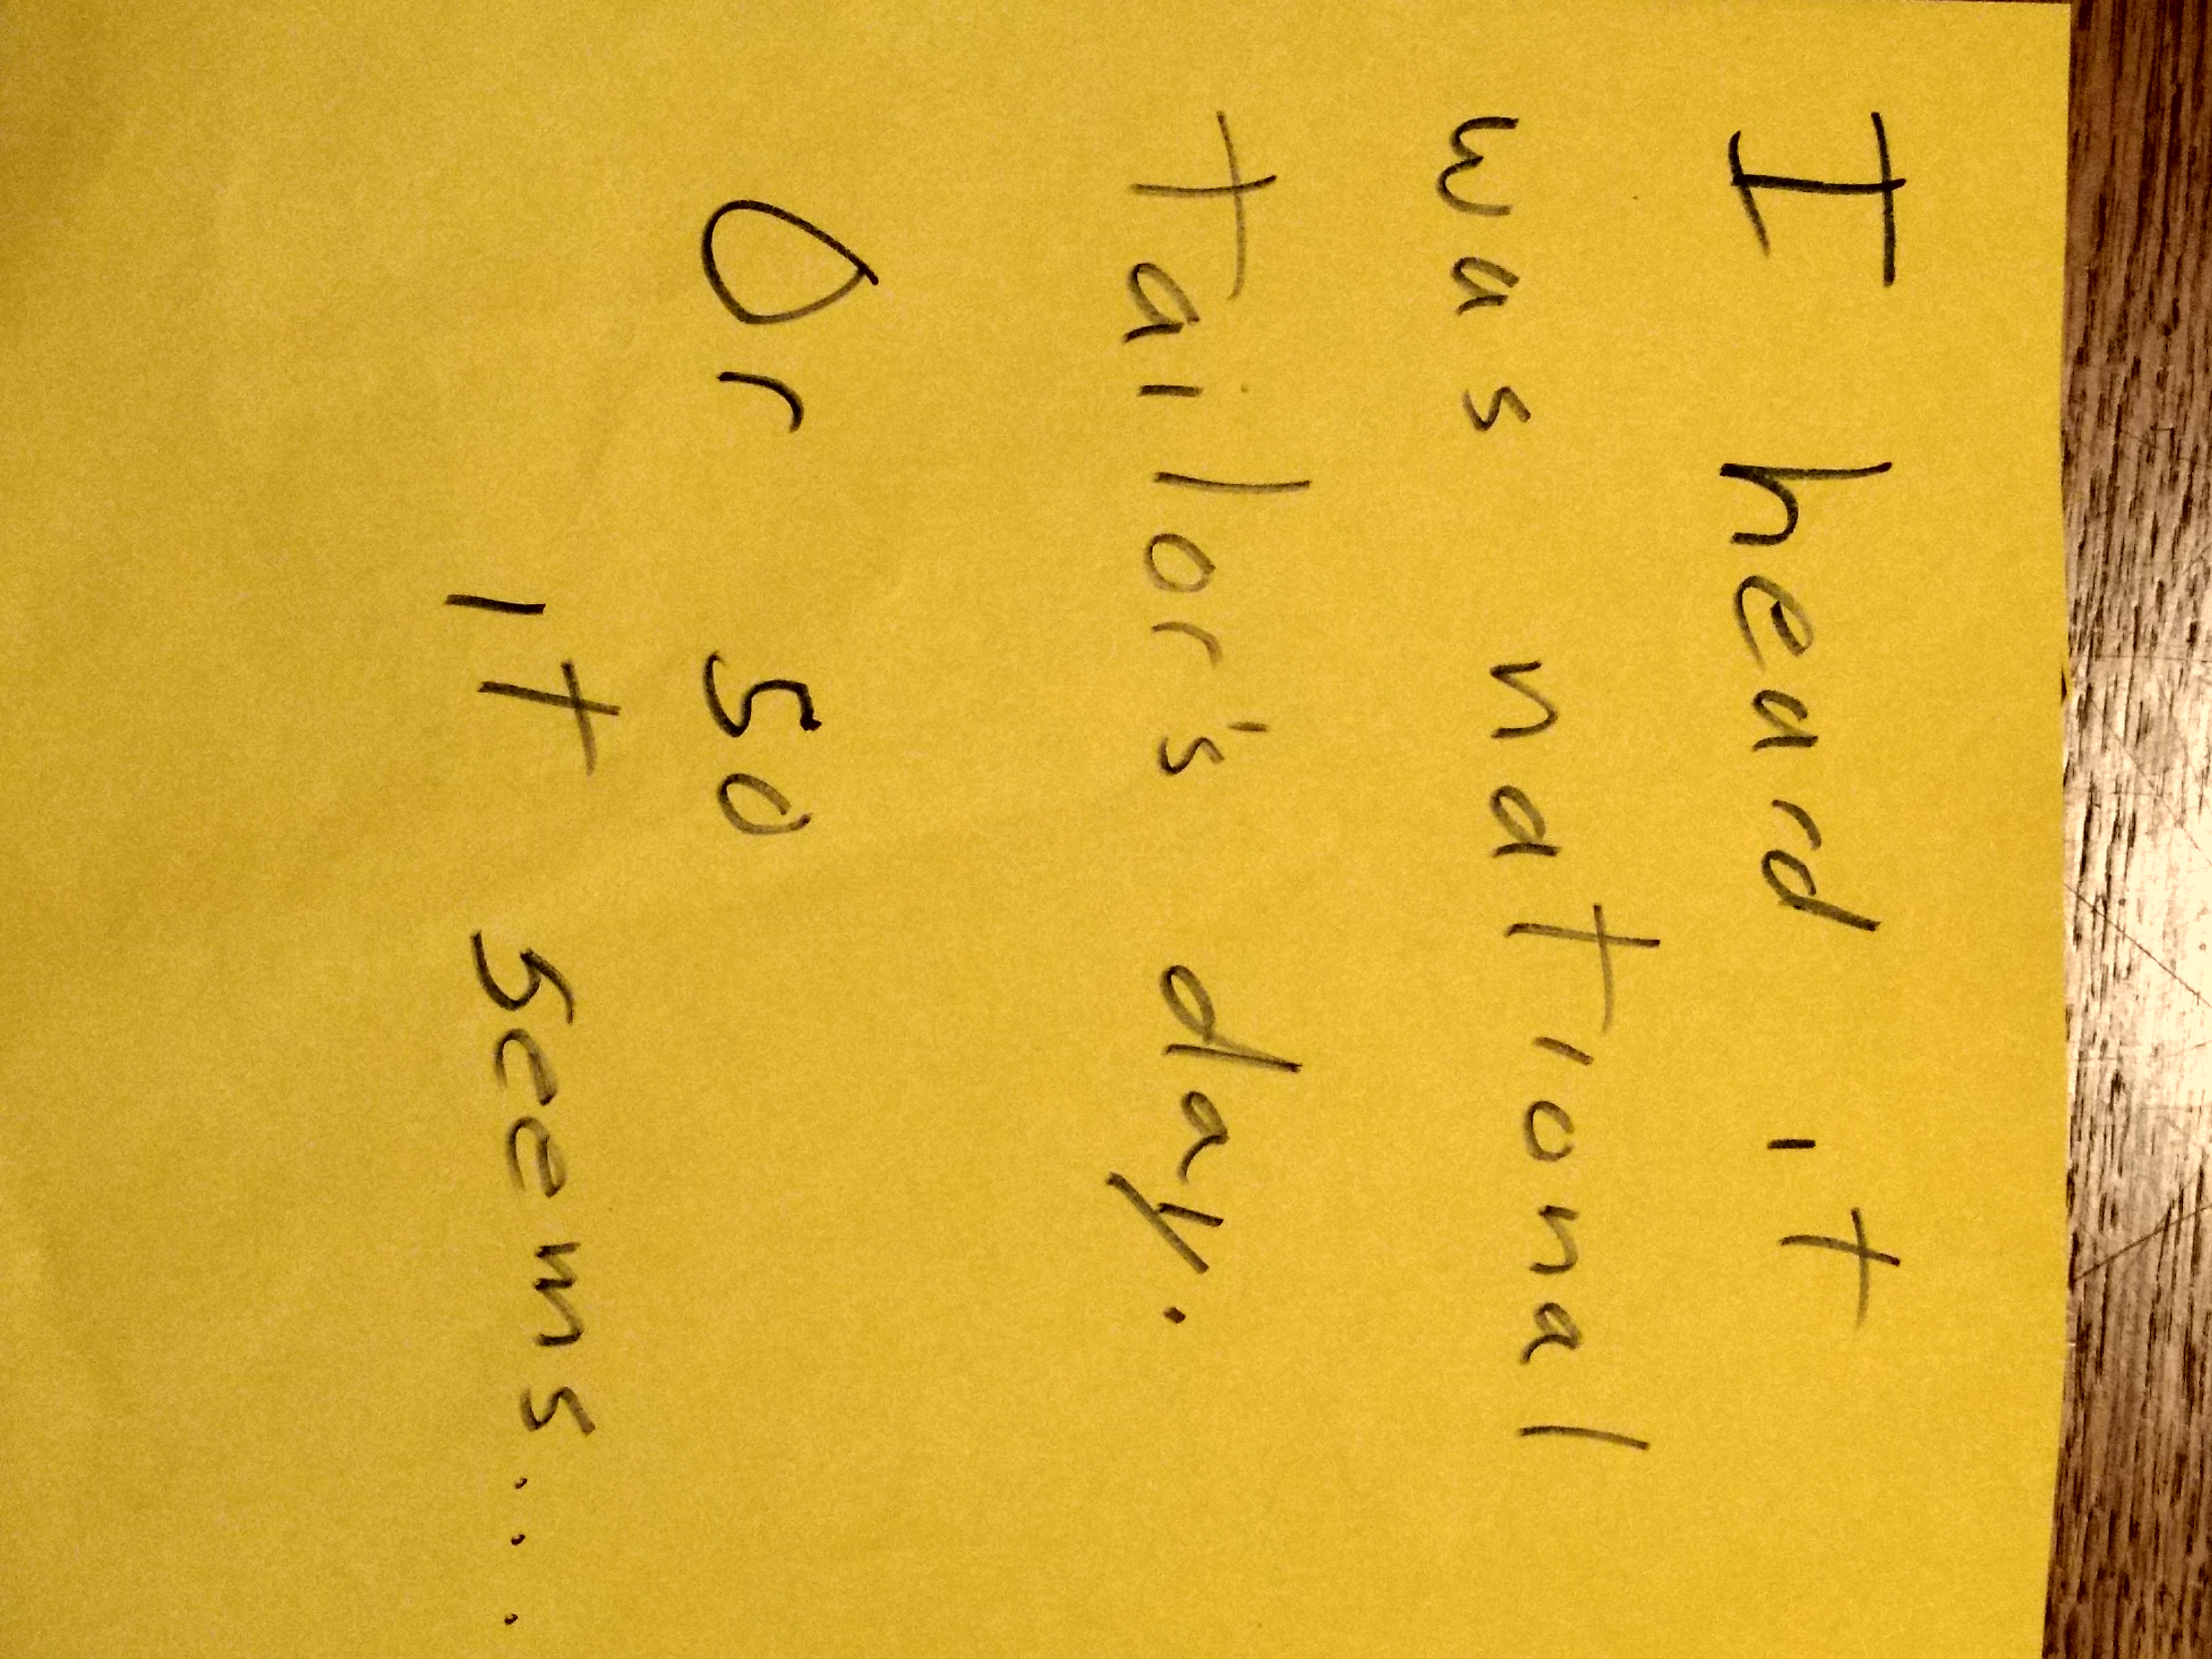 I heard it
was national
Tailor's day.
Or so
it seems...